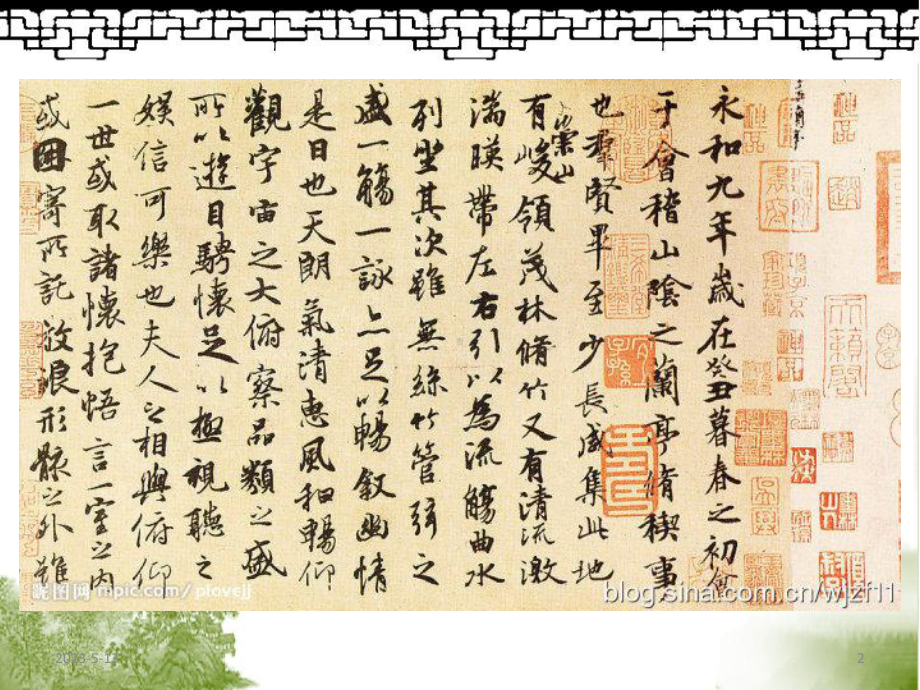 永和九年歲在癸丑暮春之初會
于會稽山陰之蘭亭脩稧事
也羣賢畢至少長咸集此地
有崇山峻領茂林脩竹又有清流激
湍暎帶左右引以為流觴曲水
列坐其次雖無絲竹管弦之
盛一觴一詠亦足以暢敘幽情
是日也天朗氣清惠風和暢仰
觀宇宙之大俯察品類之盛
所以遊目騁懷足以極視聽之
娛信可樂也夫人之相與俯仰
一世或取諸懷抱悟言一室之內
或因寄所託放浪形骸之外雖
昵图网 nipic.com/piovejj
blog.sina.com.cn/wjzf11
2023-5-12
2